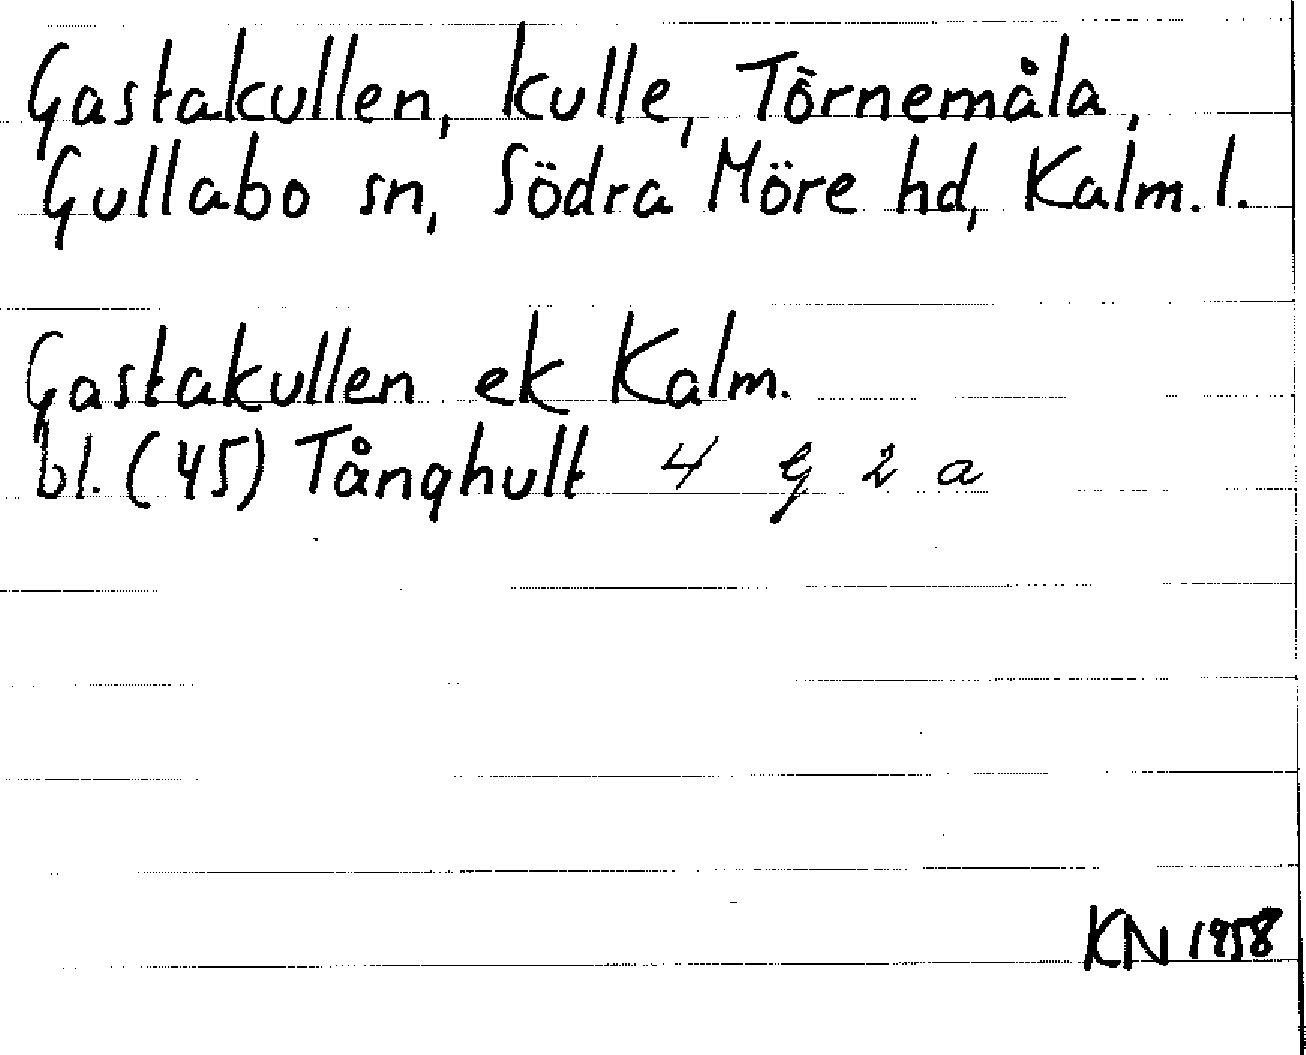 Gastakullen, kulle, Törnemåla,
Gullabo sn, Södra Möre hd, Kalm. l.
Gastakullen ek Kalm.
bl. (45) Tånghult 4 G 2 a
KN 1958